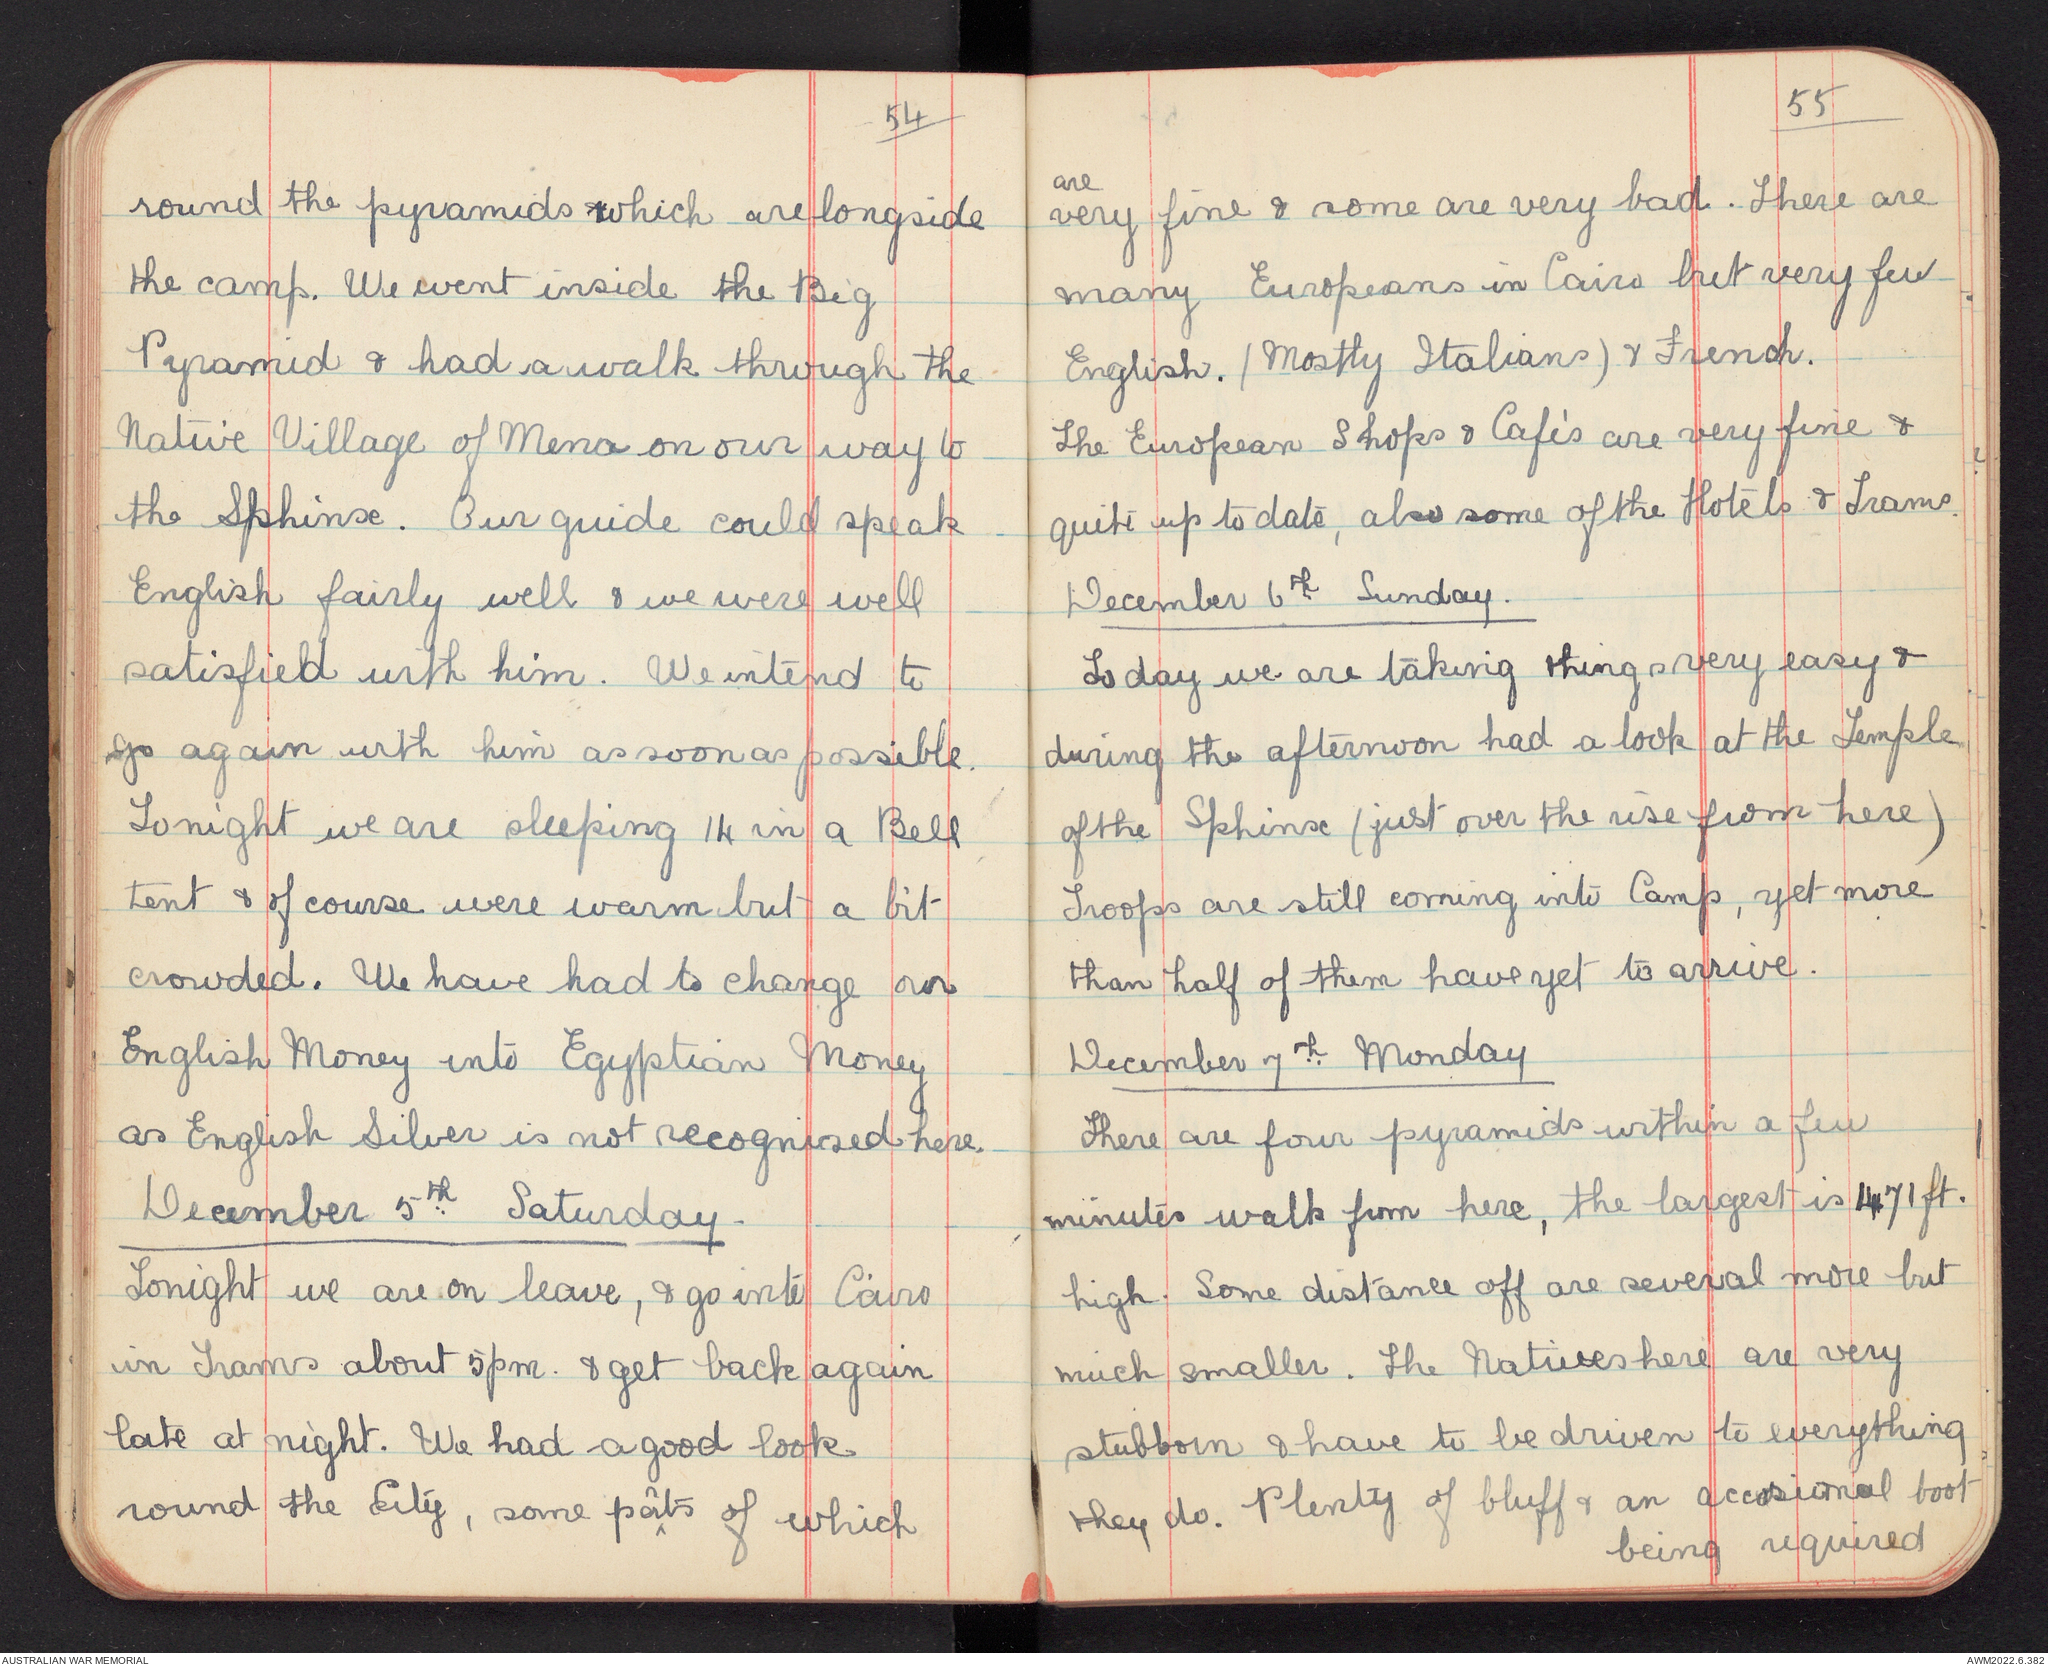 54
round the pyramids which are longside
the camp. We went inside the Big
Pyramid & had a walk through the
Native Village of Mena on our way to
the Sphinx. Our guide could speak
English fairly well & we were well
satisfied with him. We intend to
go again with him as soon as possible.
Tonight we are sleeping 14 in a Bell
tent & of course were warm but a bit
crowded. We have had to change our
English Money into Egyptian Money
as English Silver is not recognised here.
December 5th Saturday.
Tonight we are on leave, & go into Cairo
in Trams about 5pm. & get back again
late at night. We had a good look
round the City, some parts of which
55
are
very fine & some are very bad. There are
many Europeans in Cairo but very few
English. (Mostly Italians) & French.
The European Shops & Cafés are very fine &
quite up to date, also some of the Hotels & Trams.
December 6th Sunday.
To day we are taking things very easy &
during the afternoon had a look at the Temple
of the Sphinx (just over the rise from here)
Troops are still coming into Camp, yet more
than half of them have yet to arrive.
December 7th Monday
There are four pyramids within a few
minutes walk from here, the largest is 471 ft.
high. Some distance off are several more but
much smaller. The Natives here are very
stubborn & have to be driven to everything
they do. Plenty of bluff & an accasional boot
being required
AUSTRALIAN WAR MEMORIAL
AWM2022.6.382